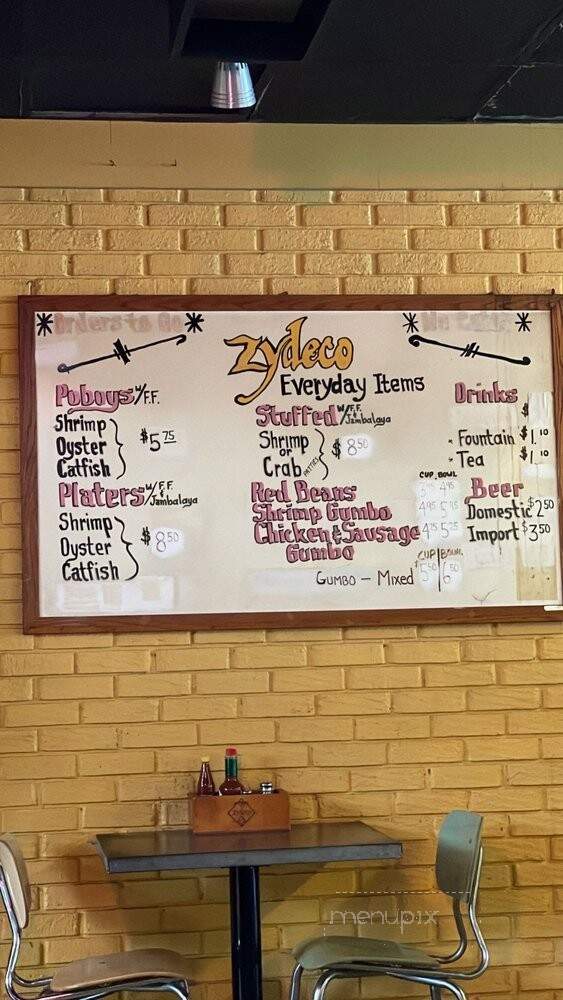 Orders to Go
Zydeco
Everyday Items
Poboys w/F.F.
Shrimp
Oyster
Catfish
$5 75
Platers w/F.F. & Jambalaya
Shrimp
Oyster
Catfish
$8 50
Stuffed w/F.F. & Jambalaya
Shrimp
or
Crab PATTIES
$8 50
CUP BOWL
Red Beans
Shrimp Gumbo 4 95
Chicken & Sausage 4 75 5 25
Gumbo
CUP BOWL
GUMBO - Mixed $5 50 6 50
Drinks
$
Fountain $1. 10
Tea $1. 10
Beer
Domestic $2 50
Import $3 50
menupix